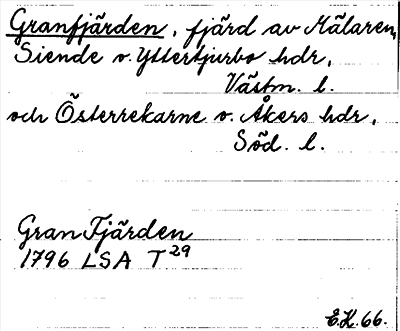 Granfjärden, fjärd av Mälaren,
Siende o. Yttertjurbo hdr,
Västm. l.
och Österrekarne o. Åkers hdr,
Söd. l.
Gran Fjärden
1796 LSA T29
E.K.66.